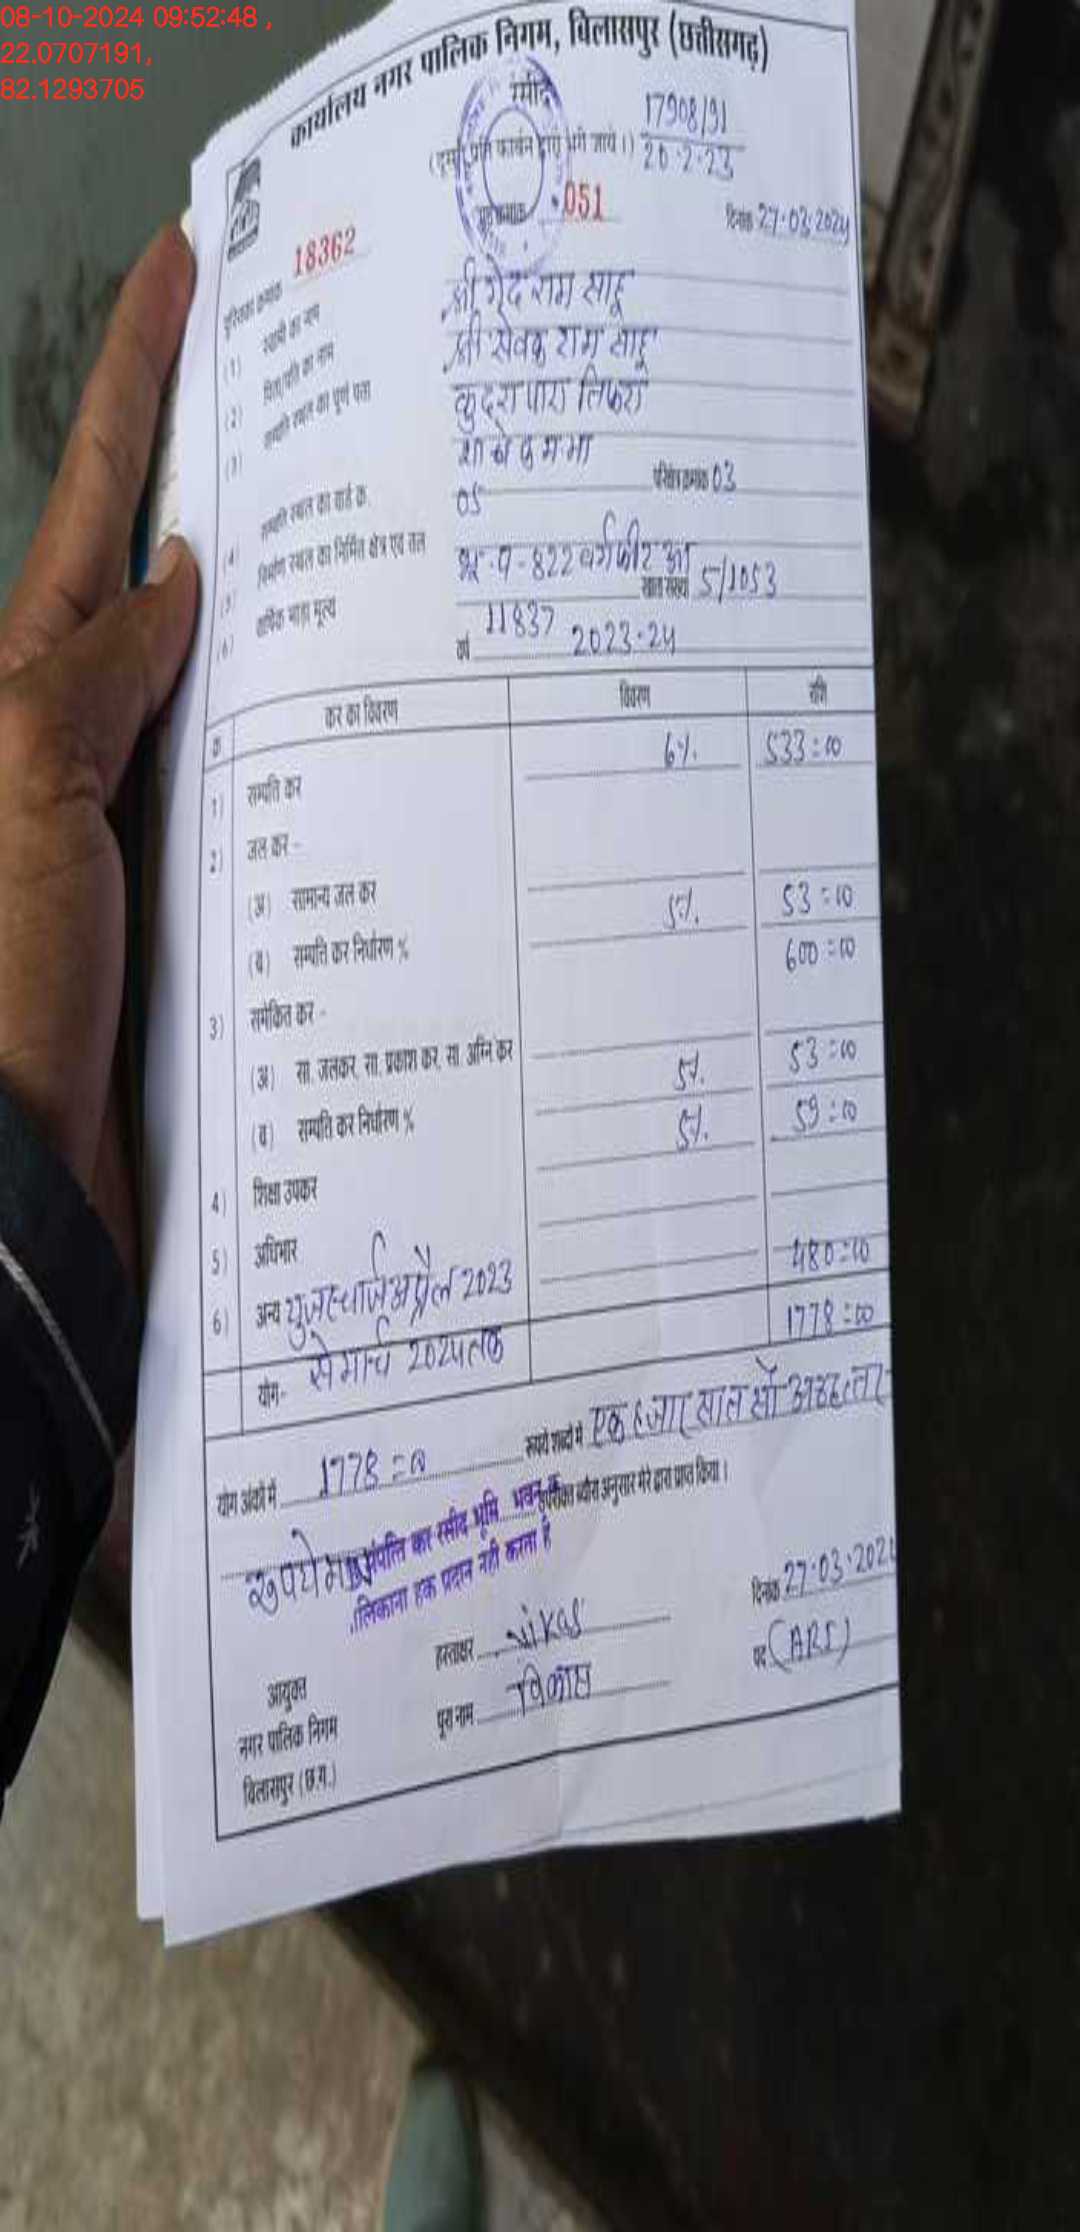 08-10-2024 09:52:48 ,
22.0707191,
82.1293705
कार्यालय नगर पालिक निगम, बिलासपुर (छत्तीसगढ़)
रसीद
17908/91
20.2.23
पुस्तिका क्रमांक 18362
051
दिनांक 27.03.2024
(1) स्वामी का नाम श्री गेंद राम साहू
(2) पिता/पति का नाम श्री सेवक राम साहू
(3) सम्पत्ति स्थल का पूर्ण पता कुदरापारा तिफरा
(4) सम्पत्ति स्थल का वार्ड क्र. 05 परिक्षेत्र क्रमांक 03
(5) निर्माण स्थल का निर्मित क्षेत्र एवं तल 822 वर्गफीट
(6) वार्षिक भाड़ा मूल्य 11837 खाता संख्या 5/1053
वर्ष 2023-24
क्र कर का विवरण विवरण राशि
1) सम्पत्ति कर 6% 533=00
2) जल कर -
(अ) सामान्य जल कर
(ब) सम्पत्ति कर निर्धारण % 5% 53=00
3) समेकित कर - 600=00
(अ) सा. जलकर, सा. प्रकाश कर, सा. अग्नि कर
(ब) सम्पत्ति कर निर्धारण % 5% 53=00
4) शिक्षा उपकर 5% 59=00
5) अधिभार
6) अन्य युजरचार्ज अप्रैल 2023 480=00
से मार्च 2024 तक
योग- 1778=00
योग अंकों में 1778=00 रूपये शब्दों में एक हजार सात सौ अठहत्तर
रूपये मात्र उपरोक्त ब्यौरा अनुसार मेरे द्वारा प्राप्त किया।
संपत्ति कर रसीद भूमि भवन
हक प्रदान नही करता है
दिनांक 27.03.202
हस्ताक्षर Vikas
पद (ARI)
पूरा नाम विकास
आयुक्त
नगर पालिक निगम
बिलासपुर (छ.ग.)